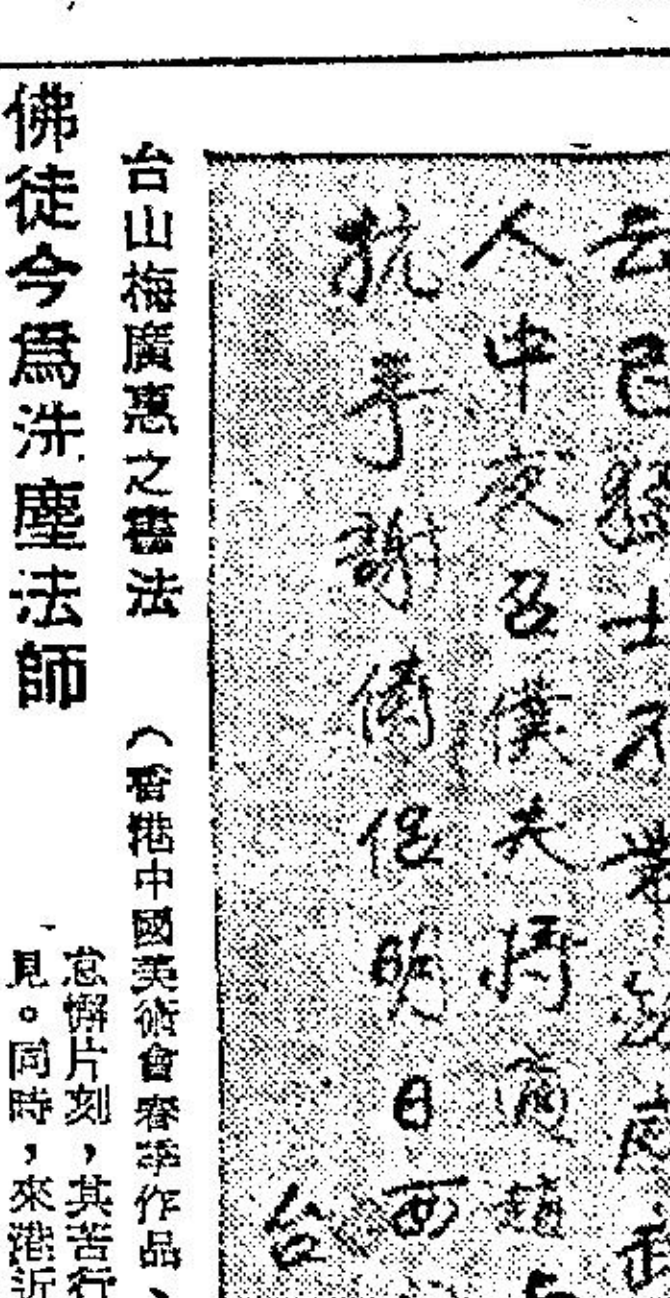 云已猛士不帶劍威武
人中夜召僕夫將適趙
抗手謝儔侶明日西
台
台山梅廣惠之書法 （香港中國美術會春季作品）
佛徒今爲洗塵法師
怠懈片刻，其苦行
見。同時，來港近